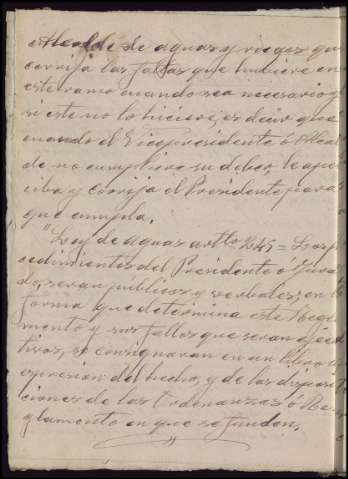 Alcalde de aguas y riegos qu
corrija las faltas que hubiere en
este ramo cuando sea necesario y
si este no lo hiciere, es decir que
cuando el Vicepresidente ó Alcal
de no cumpliera su deber, le aper
ciba y corrija el Presidente para
que cumpla.
"Ley de aguas artlo 245 = Los p
cedimientos del Presidente ó Jura
do, seran publicos y verbales, en la
forma que determina este Regla
mento y sus fallos que seran ejecu
tivos, se consignaran en un libro con
expresion del hecho, y de las disposi
ciones de las Ordenanzas ó Re
glamento en que se fundan.